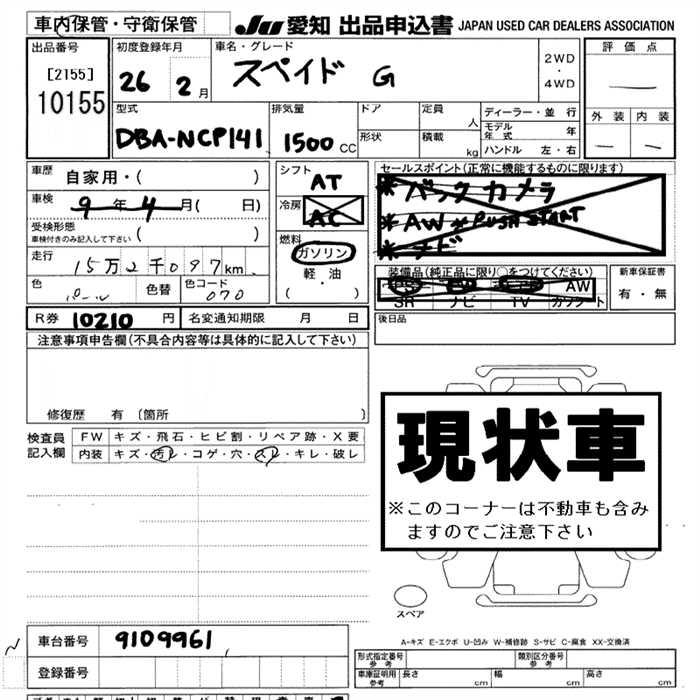 車内保管・守衛保管
JU 愛知 出品申込書 JAPAN USED CAR DEALERS ASSOCIATION
出品番号
[2155]
10155
初度登録年月
26 2月
車名・グレード
スペイド G
2WD
・
4WD
評価点
外装 内装
型式
DBA-NCP141
排気量
1500 CC
ドア
形状
定員
人
積載
kg
ディーラー・並行
モデル年式 年
ハンドル 左・右
車歴 自家用・( )
車検 9年4月( 日)
受検形態
車検付きのみ記入して下さい ( )
走行 15万2千097km
色
色替
色コード
070
シフト
AT
冷房
AC
燃料
ガソリン
・
軽・油
( ・ )
セールスポイント(正常に機能するものに限ります)
*バックカメラ
*AW * PUSH START
*ナビ
装備品(純正品に限り○をつけてください)
AW
SR ナビ TV カワシート
新車保証書
有・無
R券 10210 円
名変通知期限 月 日
後日品
注意事項申告欄(不具合内容等は具体的に記入して下さい)
修復歴 有 〔箇所 〕
検査員
記入欄
FW キズ・飛石・ヒビ割・リペア跡・X要
内装 キズ・汚レ・コゲ・穴・スレ・キレ・破レ
現状車
※このコーナーは不動車も含み
ますのでご注意下さい
スペア
A-キズ E-エクボ U-凹み W-補修跡 S-サビ C-腐食 XX-交換済
車台番号 9109961
登録番号
形式指定番号
参考
類別区分番号
参考
車庫証明用
参考
長さ cm 幅 cm 高さ cm